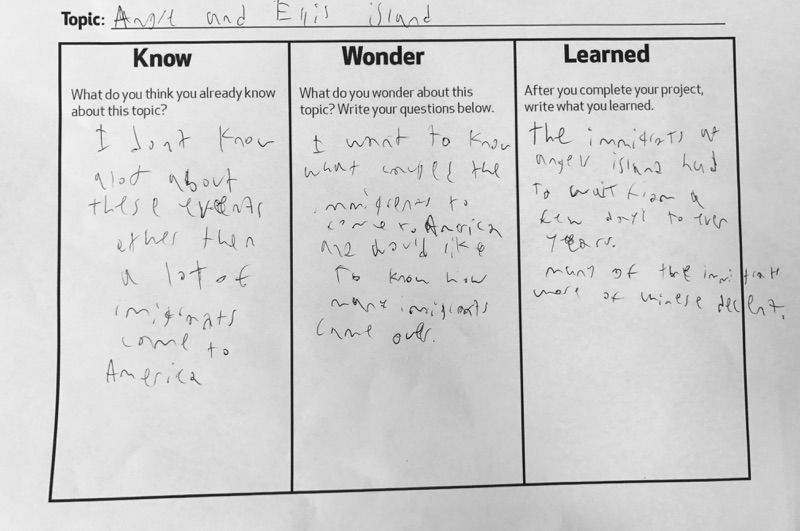 Topic: Angle and Ellis island
Know
What do you think you already know
about this topic?
I dont know
alot about
these events
other then
a lot of
imigrats
come to
America
Wonder
What do you wonder about this
topic? Write your questions below.
I want to know
what the
immigrents to
come to America
and would like
to know how
many imigrants
came over.
Learned
After you complete your project,
write what you learned.
the immigrats at
angel island had
to wait from a
few days to even
years.
many of the immigrats
were of chinese decent.